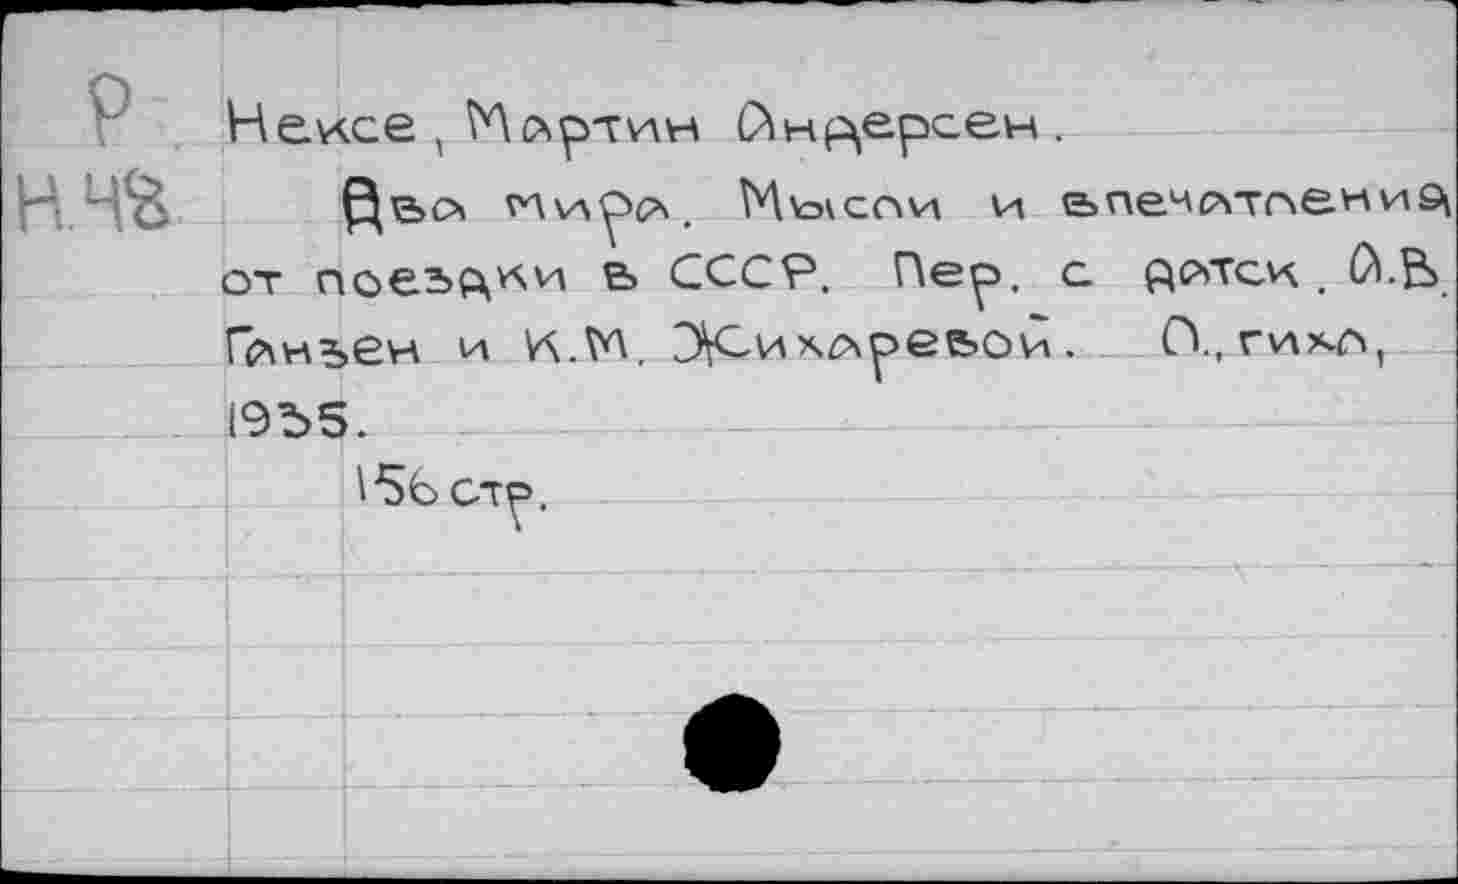 Р
Н.48
Нексе, Мартин Андерсен.
Два мира. Мысли и впечатления
от поездки в СССР. Пер. с датск. А.В.
Ганзен и К.М. Жихаревой. Л., гихл,
1935.
156 стр.